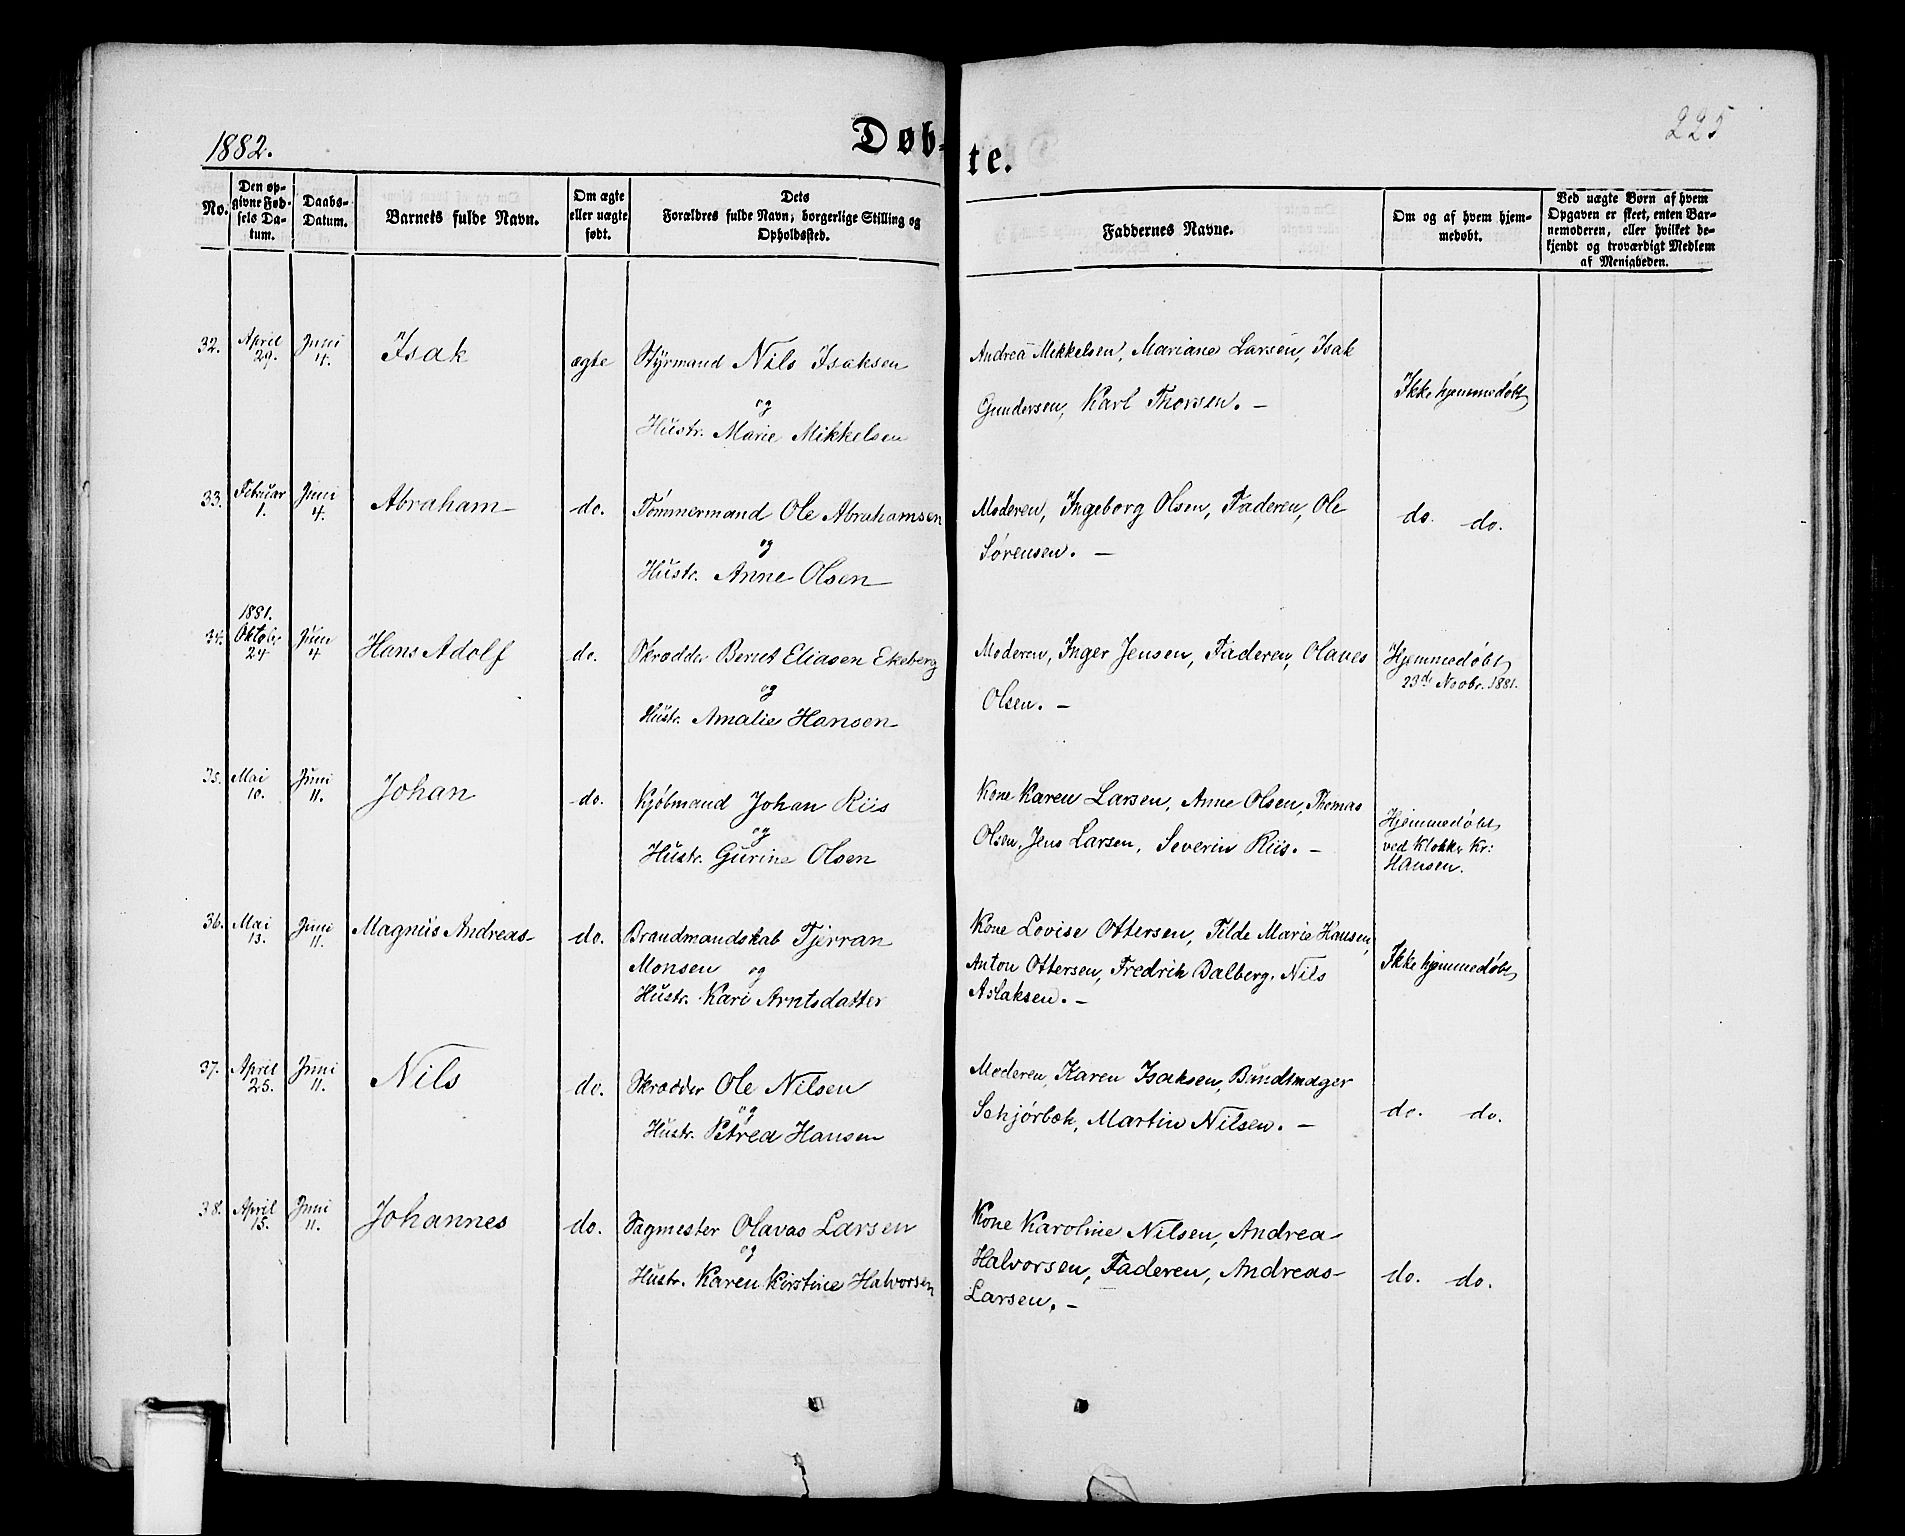 1882.
Døb-
te.
225
No.
Den op-
givne Fød-
sels Da-
tum.
Daabs-
Datum.
Barnets fulde Navn.
Om ægte
eller uægte
født.
Dets
Forældres fulde Navn, borgerlige Stilling og
Opholdssted.
Faddernes Navne.
Om og af hvem hjem-
medøbt.
Ved uægte Børn af hvem
Opgaven er skeet, enten Bar-
nemoderen, eller hvilket be-
kjendt og troværdigt Medlem
af Menigheden.
32.
April
29.
Juni
4.
Isak
ægte
Styrmand Nils Isaksen
og
Hustr. Marie Mikkelsen
Andrea Mikkelsen, Mariane Larsen, Isak
Gundersen, Karl Thorsen. –
Ikke hjemmedøbt
33.
Februar
1.
Juni
4.
Abraham
do.
Tømmermand Ole Abrahamsen
og
Hustr. Anne Olsen
Moderen, Ingeborg Olsen, Faderen, Ole
Sørensen. –
do. do.
34.
1881.
Oktober
24
Juni
4
Hans Adolf
do.
Skrædder Bernt Eliasen Ekeberg
og
Hustr. Amalie Hansen
Moderen, Inger Jensen, Faderen, Olaves
Olsen. –
Hjemmedøbt
23de Novbr. 1881.
35.
Mai
10.
Juni
11.
Johan
do.
Kjøbmand Johan Riis
og
Hustr. Gurine Olsen
Kone Karen Larsen, Anne Olsen, Thomas
Olsen, Jens Larsen, Severin Riis. –
Hjemmedøbt
ved Klokker Kr:
Hansen.
36.
Mai
13.
Juni
11.
Magnus Andreas
do.
Brandmandskab Tjerran
Monsen og
Hustr. Kari Arntsdatter
Kone Lovise Ottersen, Tilde Marie Hansen,
Anton Ottersen, Fredrik Dalberg, Nils
Aslaksen. –
Ikke hjemmedøbt
37.
April
25.
Juni
11.
Nils
do.
Skrædder Ole Nilsen
og
Hustr. Petrea Hansen
Moderen, Karen Isaksen, Bundtmager
Schjørbæk, Martin Nilsen. –
do. do.
38.
April
15.
Juni
11.
Johannes
do.
Sagmester Olavas Larsen
og
Hustr. Karen Kirstine Halvorsen
Kone Karoline Nilsen, Andrea
Halvorsen, Faderen, Andreas
Larsen. –
do. do.